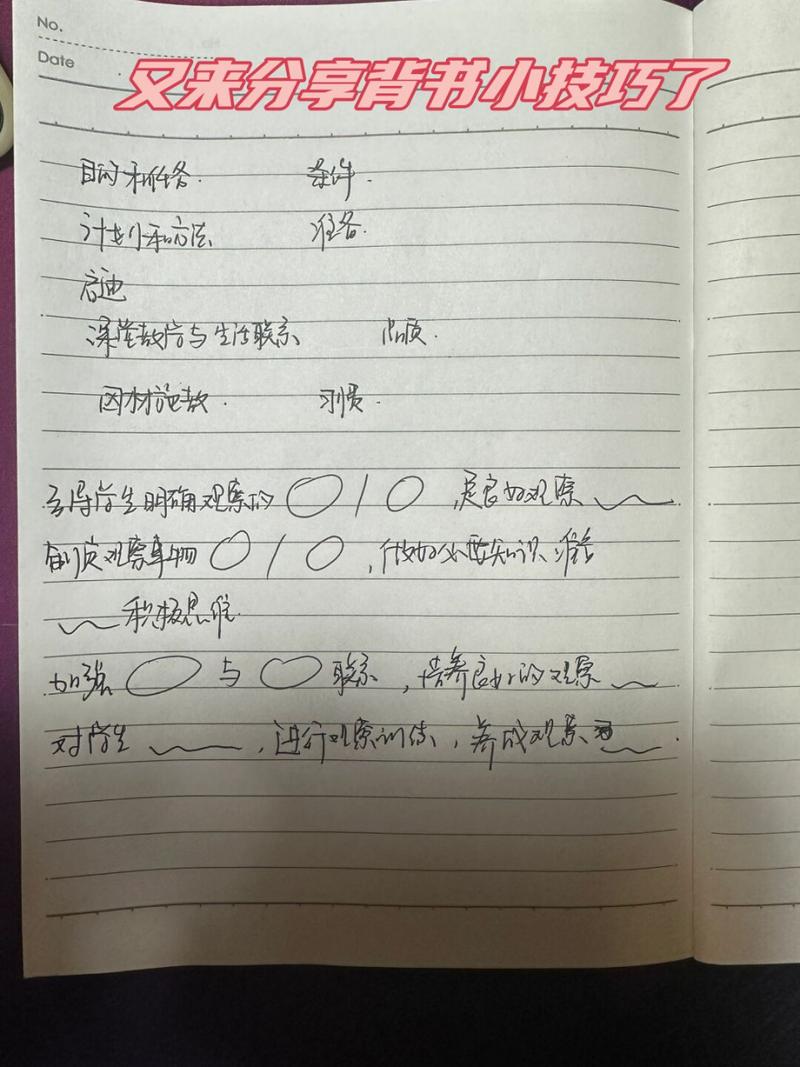 No.
Date
又来分享背书小技巧了
目的和任务. 条件.
计划和方法 准备.
启迪
课堂教学与生活联系 品质.
因材施教. 习惯.
引导学生明确观察的 ,是良好观察
制定观察事物 ,做好必要知识准备
积极思维
加强 与 联系,培养良好的观察
对学生 ,进行观察训练,养成观察 .